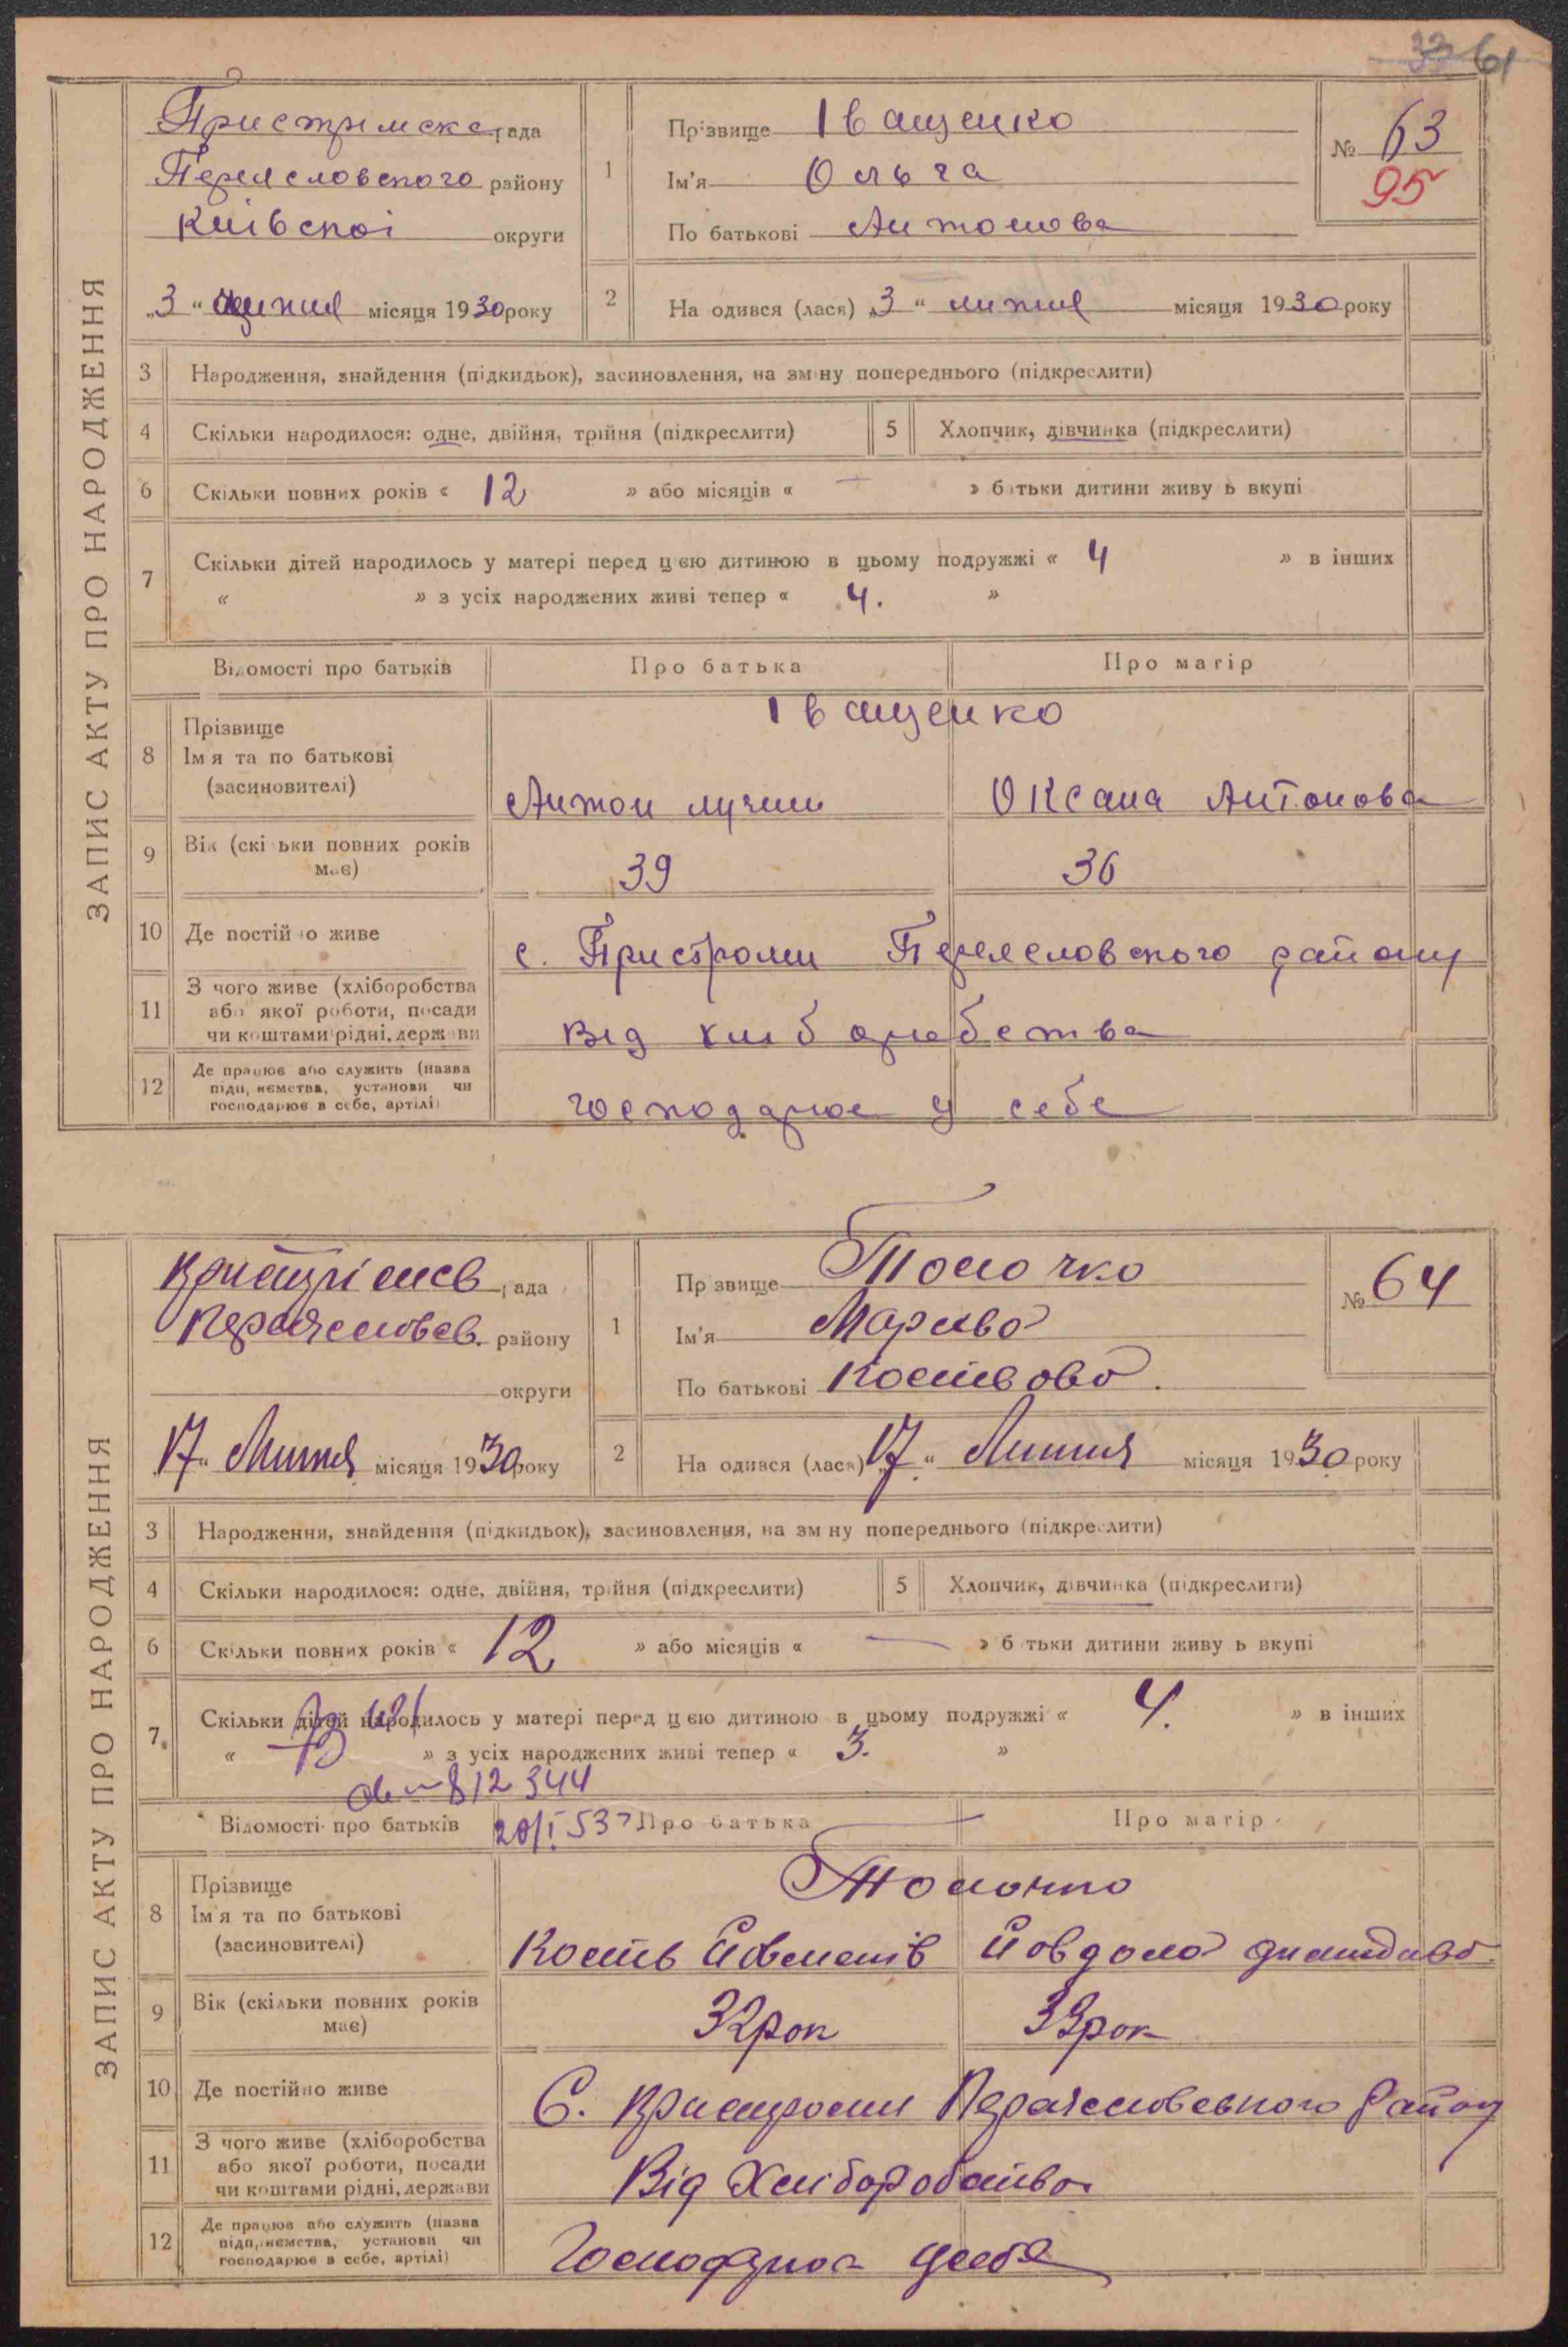 33 61
ЗАПИС АКТУ ПРО НАРОДЖЕННЯ
Пристрімська рада
Переяславського району
Київської округи
„3“ липня місяця 1930 року
1 Прізвище Іващенко
Ім'я Ольга
По батькові Антонова
№ 63
95
2 На одився (лася) „3“ липня місяця 1930 року
3 Народження, знайдення (підкидьок), засиновлення, на зміну попереднього (підкреслити)
4 Скільки народилося: одне, двійня, трійня (підкреслити) 5 Хлопчик, дівчинка (підкреслити)
6 Скільки повних років « 12 » або місяців « — » батьки дитини живу ь вкупі
7 Скільки дітей народилось у матері перед цією дитиною в цьому подружжі « 4 » в інших
« » з усіх народжених живі тепер « 4. »
Відомості про батьків Про батька Про матір
8 Прізвище
Ім я та по батькові
(засиновителі)
Іващенко
Антон Оксана Антонова
9 Вік (скі ьки повних років має) 39 36
10 Де постійно живе с. Пристроми Переяславського району
11 З чого живе (хліборобства або якої роботи, посади чи коштами рідні, держави Від хліборобства
12 Де працює або служить (назва підприємства, установи чи господарює в себе, артілі) господарює у себе
ЗАПИС АКТУ ПРО НАРОДЖЕННЯ
Пристрімсв рада
Переяславсв. району
округи
„17“ Липня місяця 1930 року
1 Прізвище Толочко
Ім'я
По батькові Костьова.
№ 64
2 На одився (лася) „17“ Липня місяця 1930 року
3 Народження, знайдення (підкидьок), засиновлення, на зм ну попереднього (підкреслити)
4 Скільки народилося: одне, двійня, трійня (підкреслити) 5 Хлопчик, дівчинка (підкреслити)
6 Скільки повних років « 12 » або місяців « — » б тьки дитини живу ь вкупі
7. Скільки дітей народилось у матері перед цією дитиною в цьому подружжі « 4. » в інших
« » з усіх народжених живі тепер « 3. »
812344
Відомості про батьків 20/I 53 Про батька Про матір
8 Прізвище
Ім'я та по батькові
(засиновителі)
Толочко
Кость Йовдоха
9 Вік (скільки повних років має) 32 рок 33 рок
10 Де постійно живе С. Пристроми Переяславського району
11 З чого живе (хліборобства або якої роботи, посади чи коштами рідні, держави Від Хліборобства
12 Де працює або служить (назва підприємства, установи чи господарює в себе, артілі) Господарює у себе